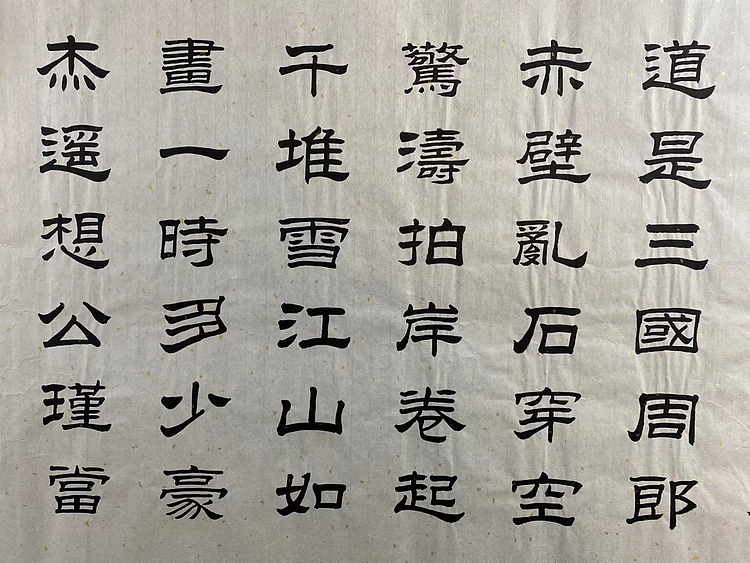 道是三國周郎
赤壁亂石穿空
驚濤拍岸卷起
千堆雪江山如
畫一時多少豪
杰遥想公瑾當